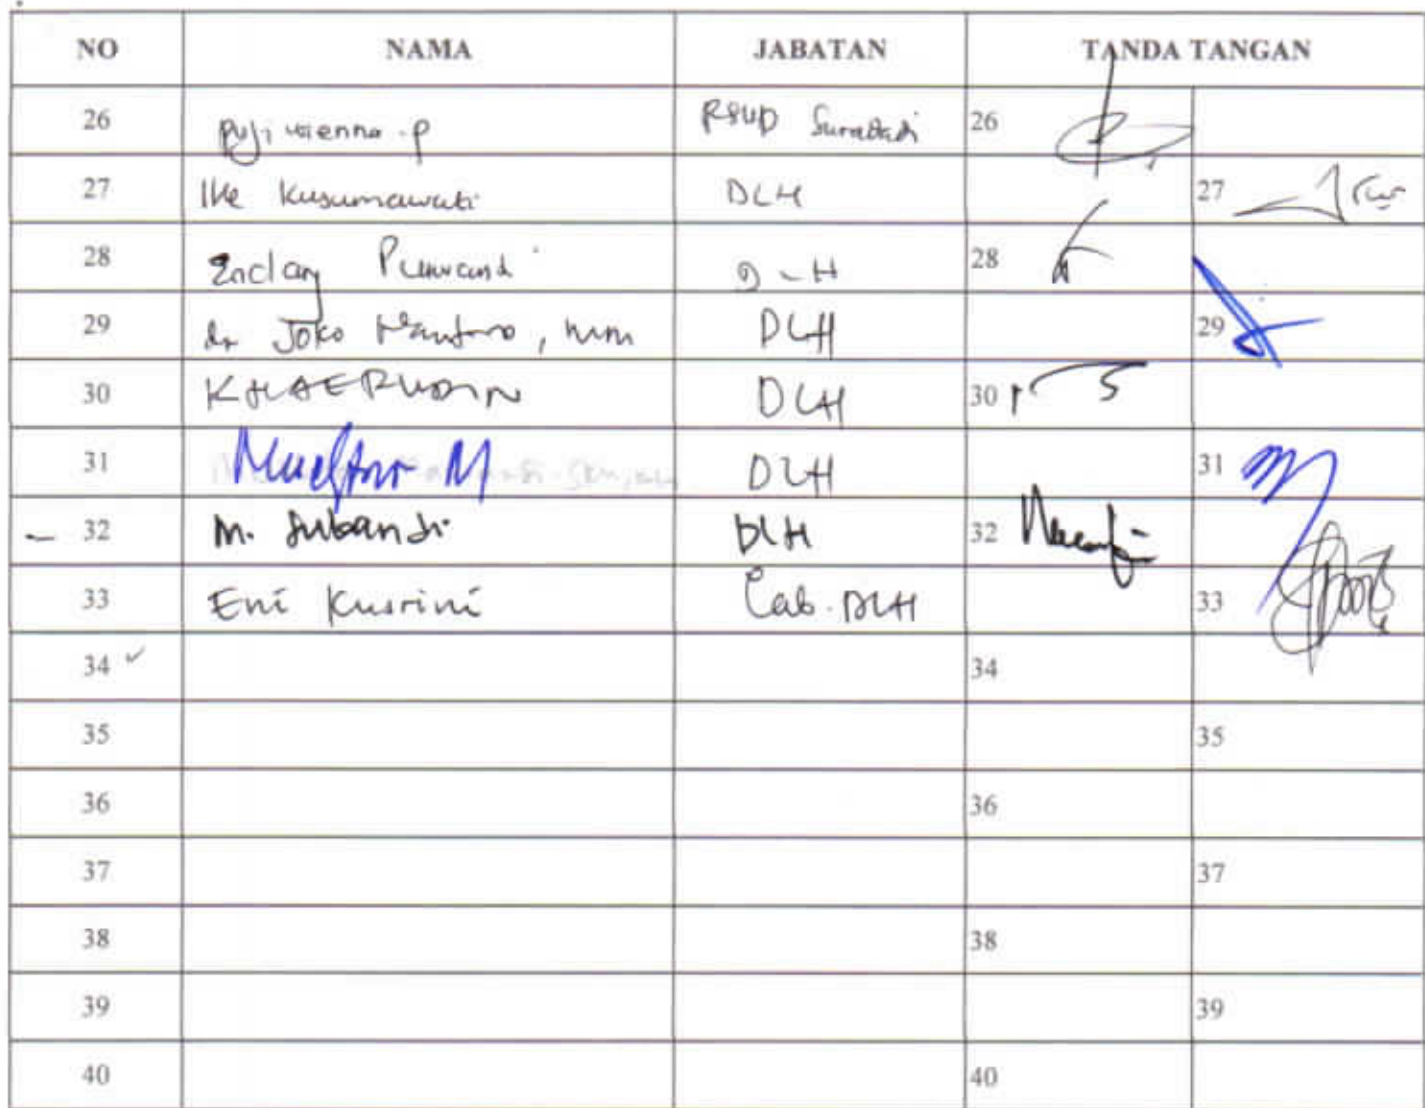 NO NAMA JABATAN TANDA TANGAN
26 Puji wienna . p RSUD Suradadi 26
27 Ike Kusumawati DLH 27
28 Endang Purwanti DLH 28
29 dr Joko Wantoro, MM DLH 29
30 KHAERUDIN DLH 30
31 M DLH 31
32 M. Subandi DLH 32
33 Eni Kusrini Lab. DLH 33
34 34
35 35
36 36
37 37
38 38
39 39
40 40